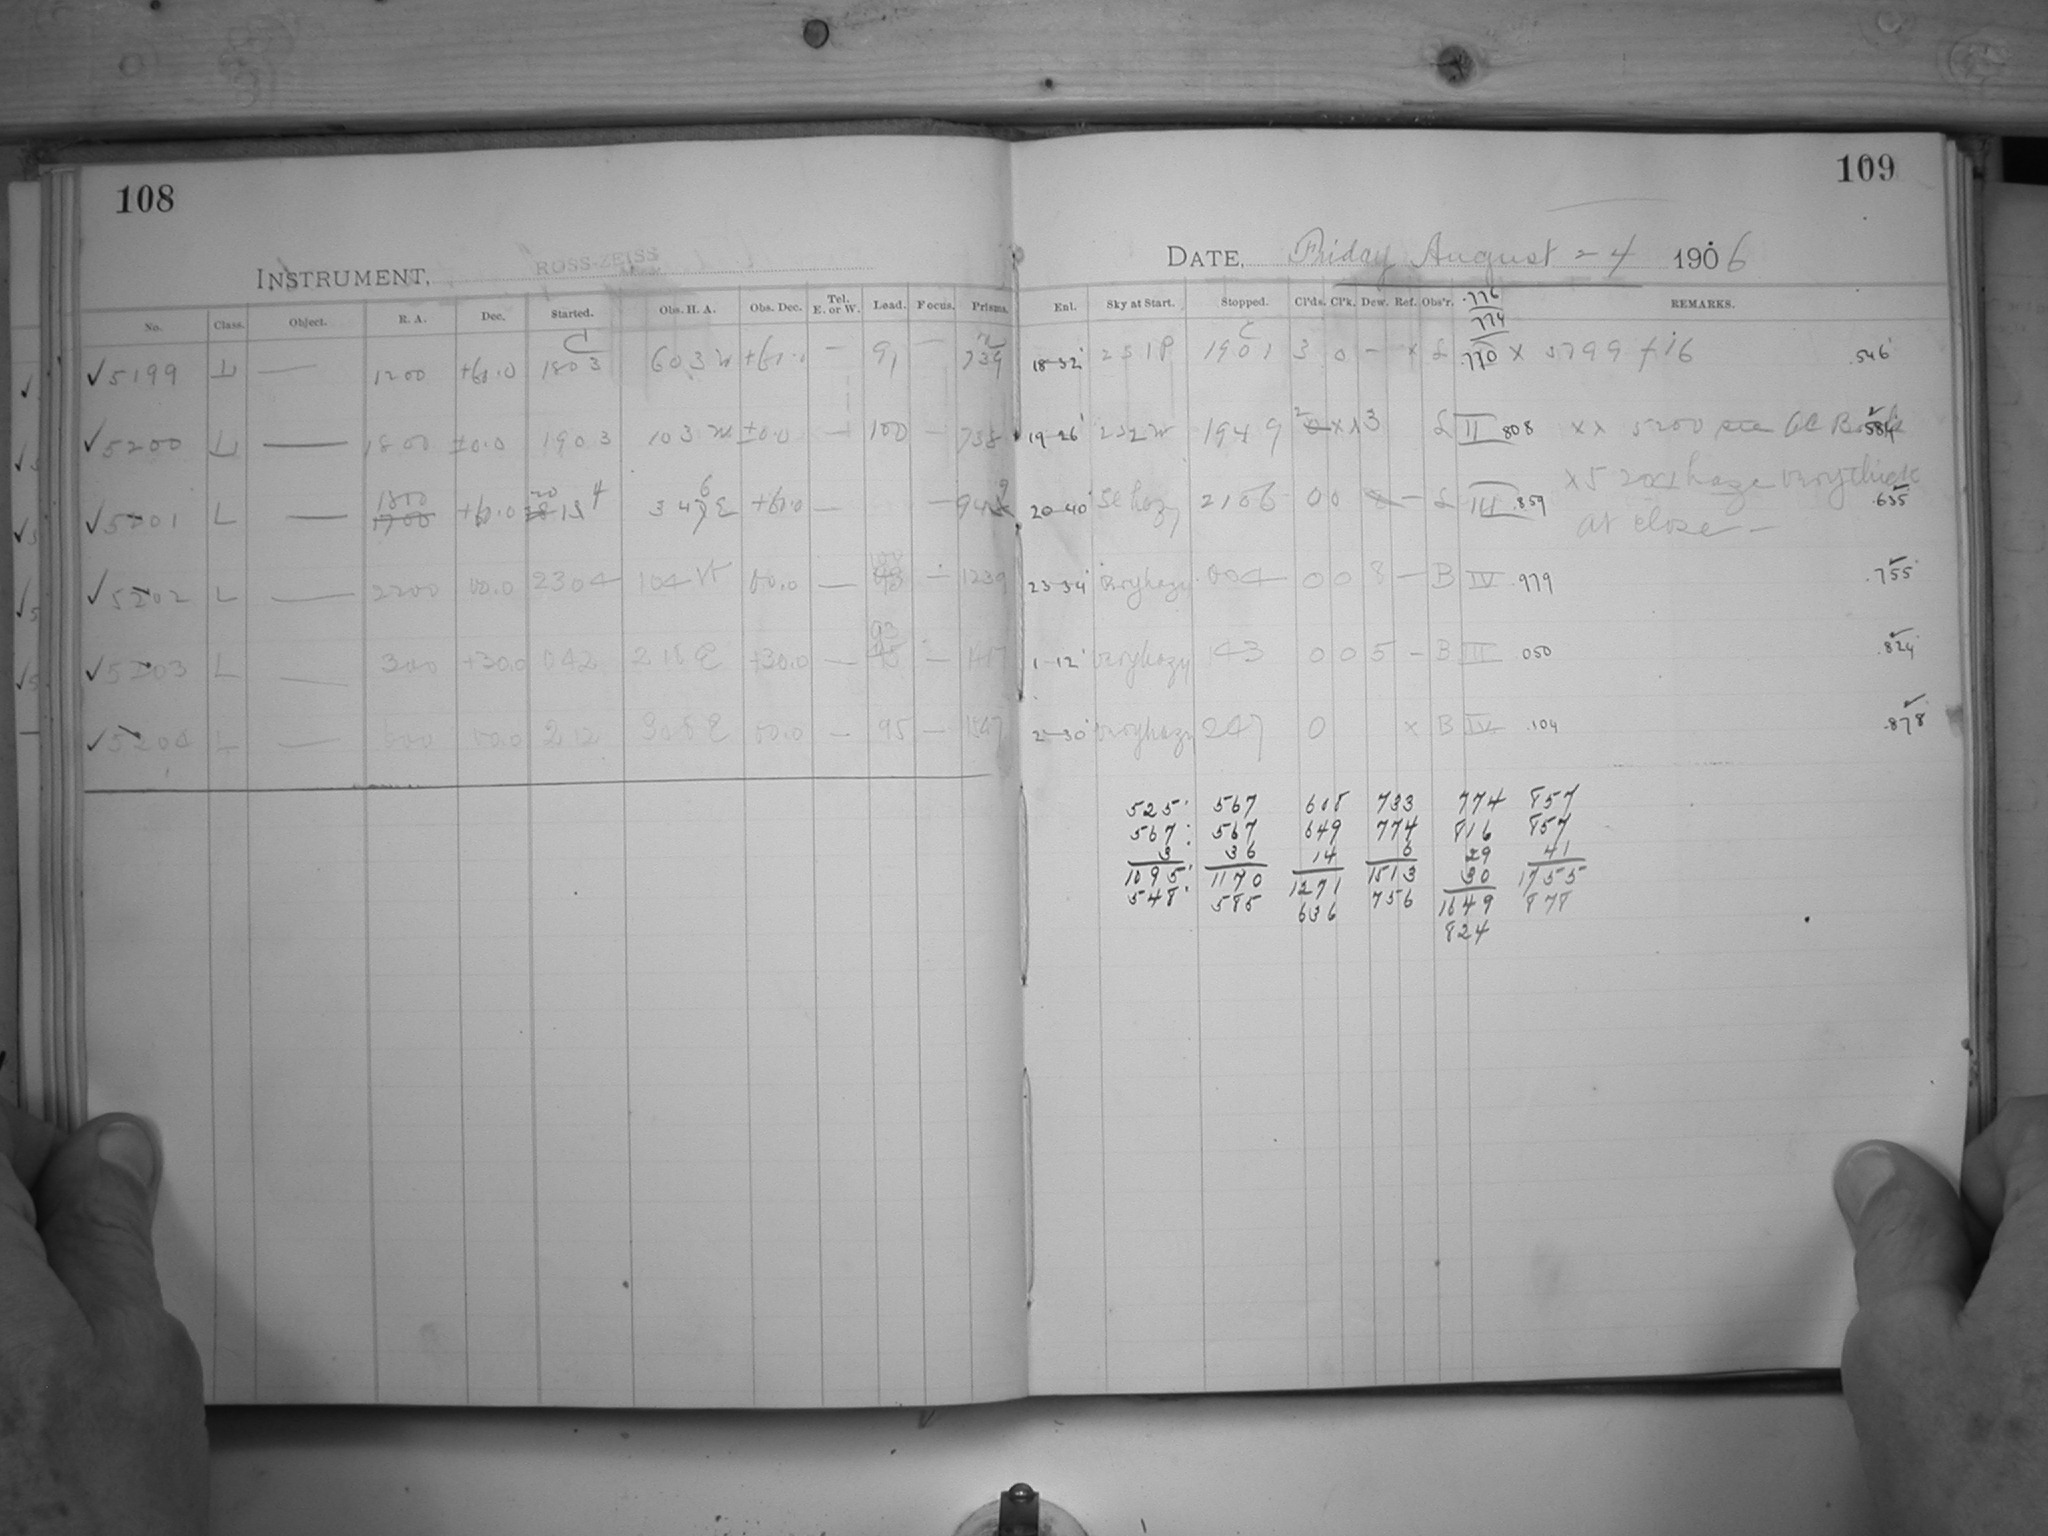 108
109
INSTRUMENT, ROSS-ZEISS
DATE, Friday August 24 1906
No. Class. Object. R. A. Dec. Started. Obs. H. A. Obs. Dec. Tel. E. or W. Lead. Focus. Prisms.
Enl. Sky at Start. Stopped. Cl'ds. Cl'k. Dew. Ref. Obs'r. REMARKS.
.776
.774
✓5199 L — 1200 1803 603 W — 91 — 739 18-32 1901 3 0 - × L .770 × .546
✓5200 L — 1800 ±0.0 1903 103 W ±0.0 — 100 — 738 19-26 1949 ×× 3 L II 808 ×× 5200 see .584
✓5201 L — 1800 20 4 — 20-40 Sl hazy 0 0 - L III .859 haze very thick .635
at close —
✓5202 L — 2200 00.0 2304 104 W 00.0 — — 1239 23-34 very hazy 004 0 0 8 — B IV .979 .755
✓5203 L — 300 +30.0 042 218 E +30.0 — 93 — 1-12 very hazy 143 0 0 5 — B III .050 .824
✓5204 L — 00.0 212 308 E 00.0 — 95 — 1547 2-30 very hazy 247 0 × B IV .104 .878
525 567 608 733 774 857
567 567 649 774 816 857
3 36 14 6 29 41
1095 1170 1271 1513 30 1755
548 585 636 756 1649 878
824